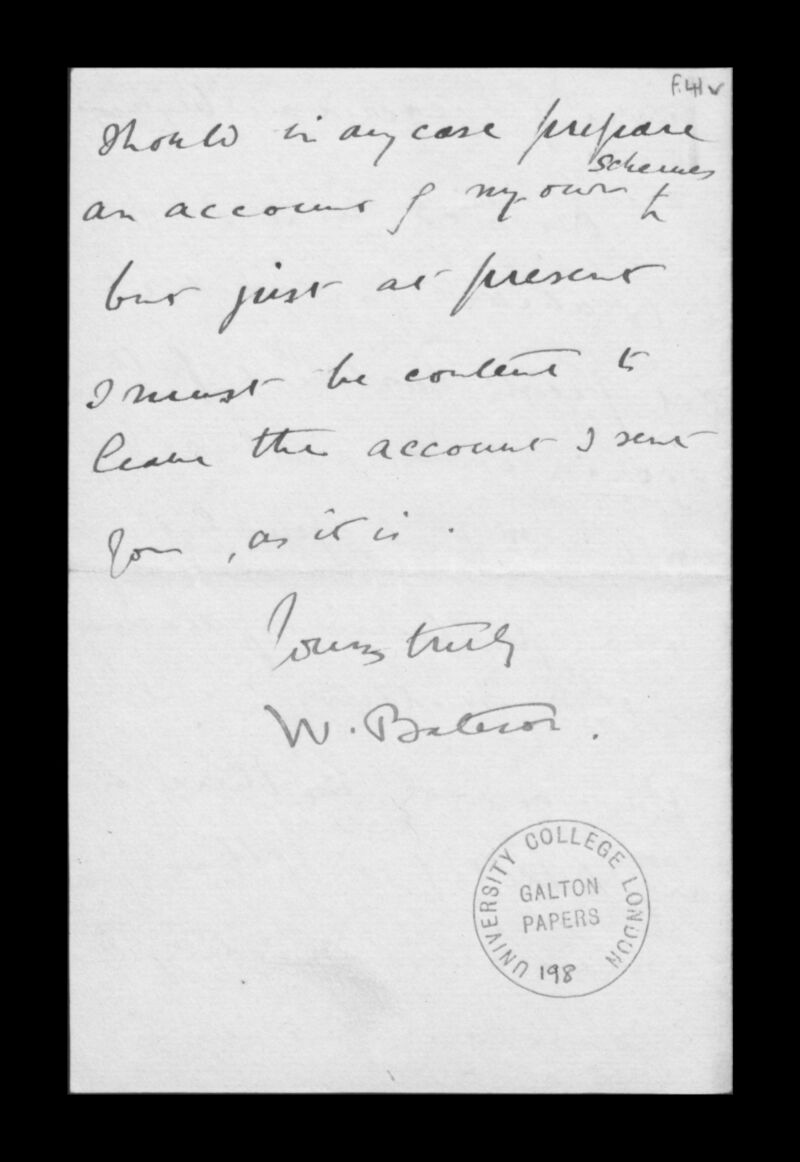 F.41v
should in any case prepare
schemes
an account of my own
but just at present
I must be content to
leave the account I sent
you, as it is.
Yours truly
W. Bateson.
UNIVERSITY COLLEGE LONDON
GALTON
PAPERS
198